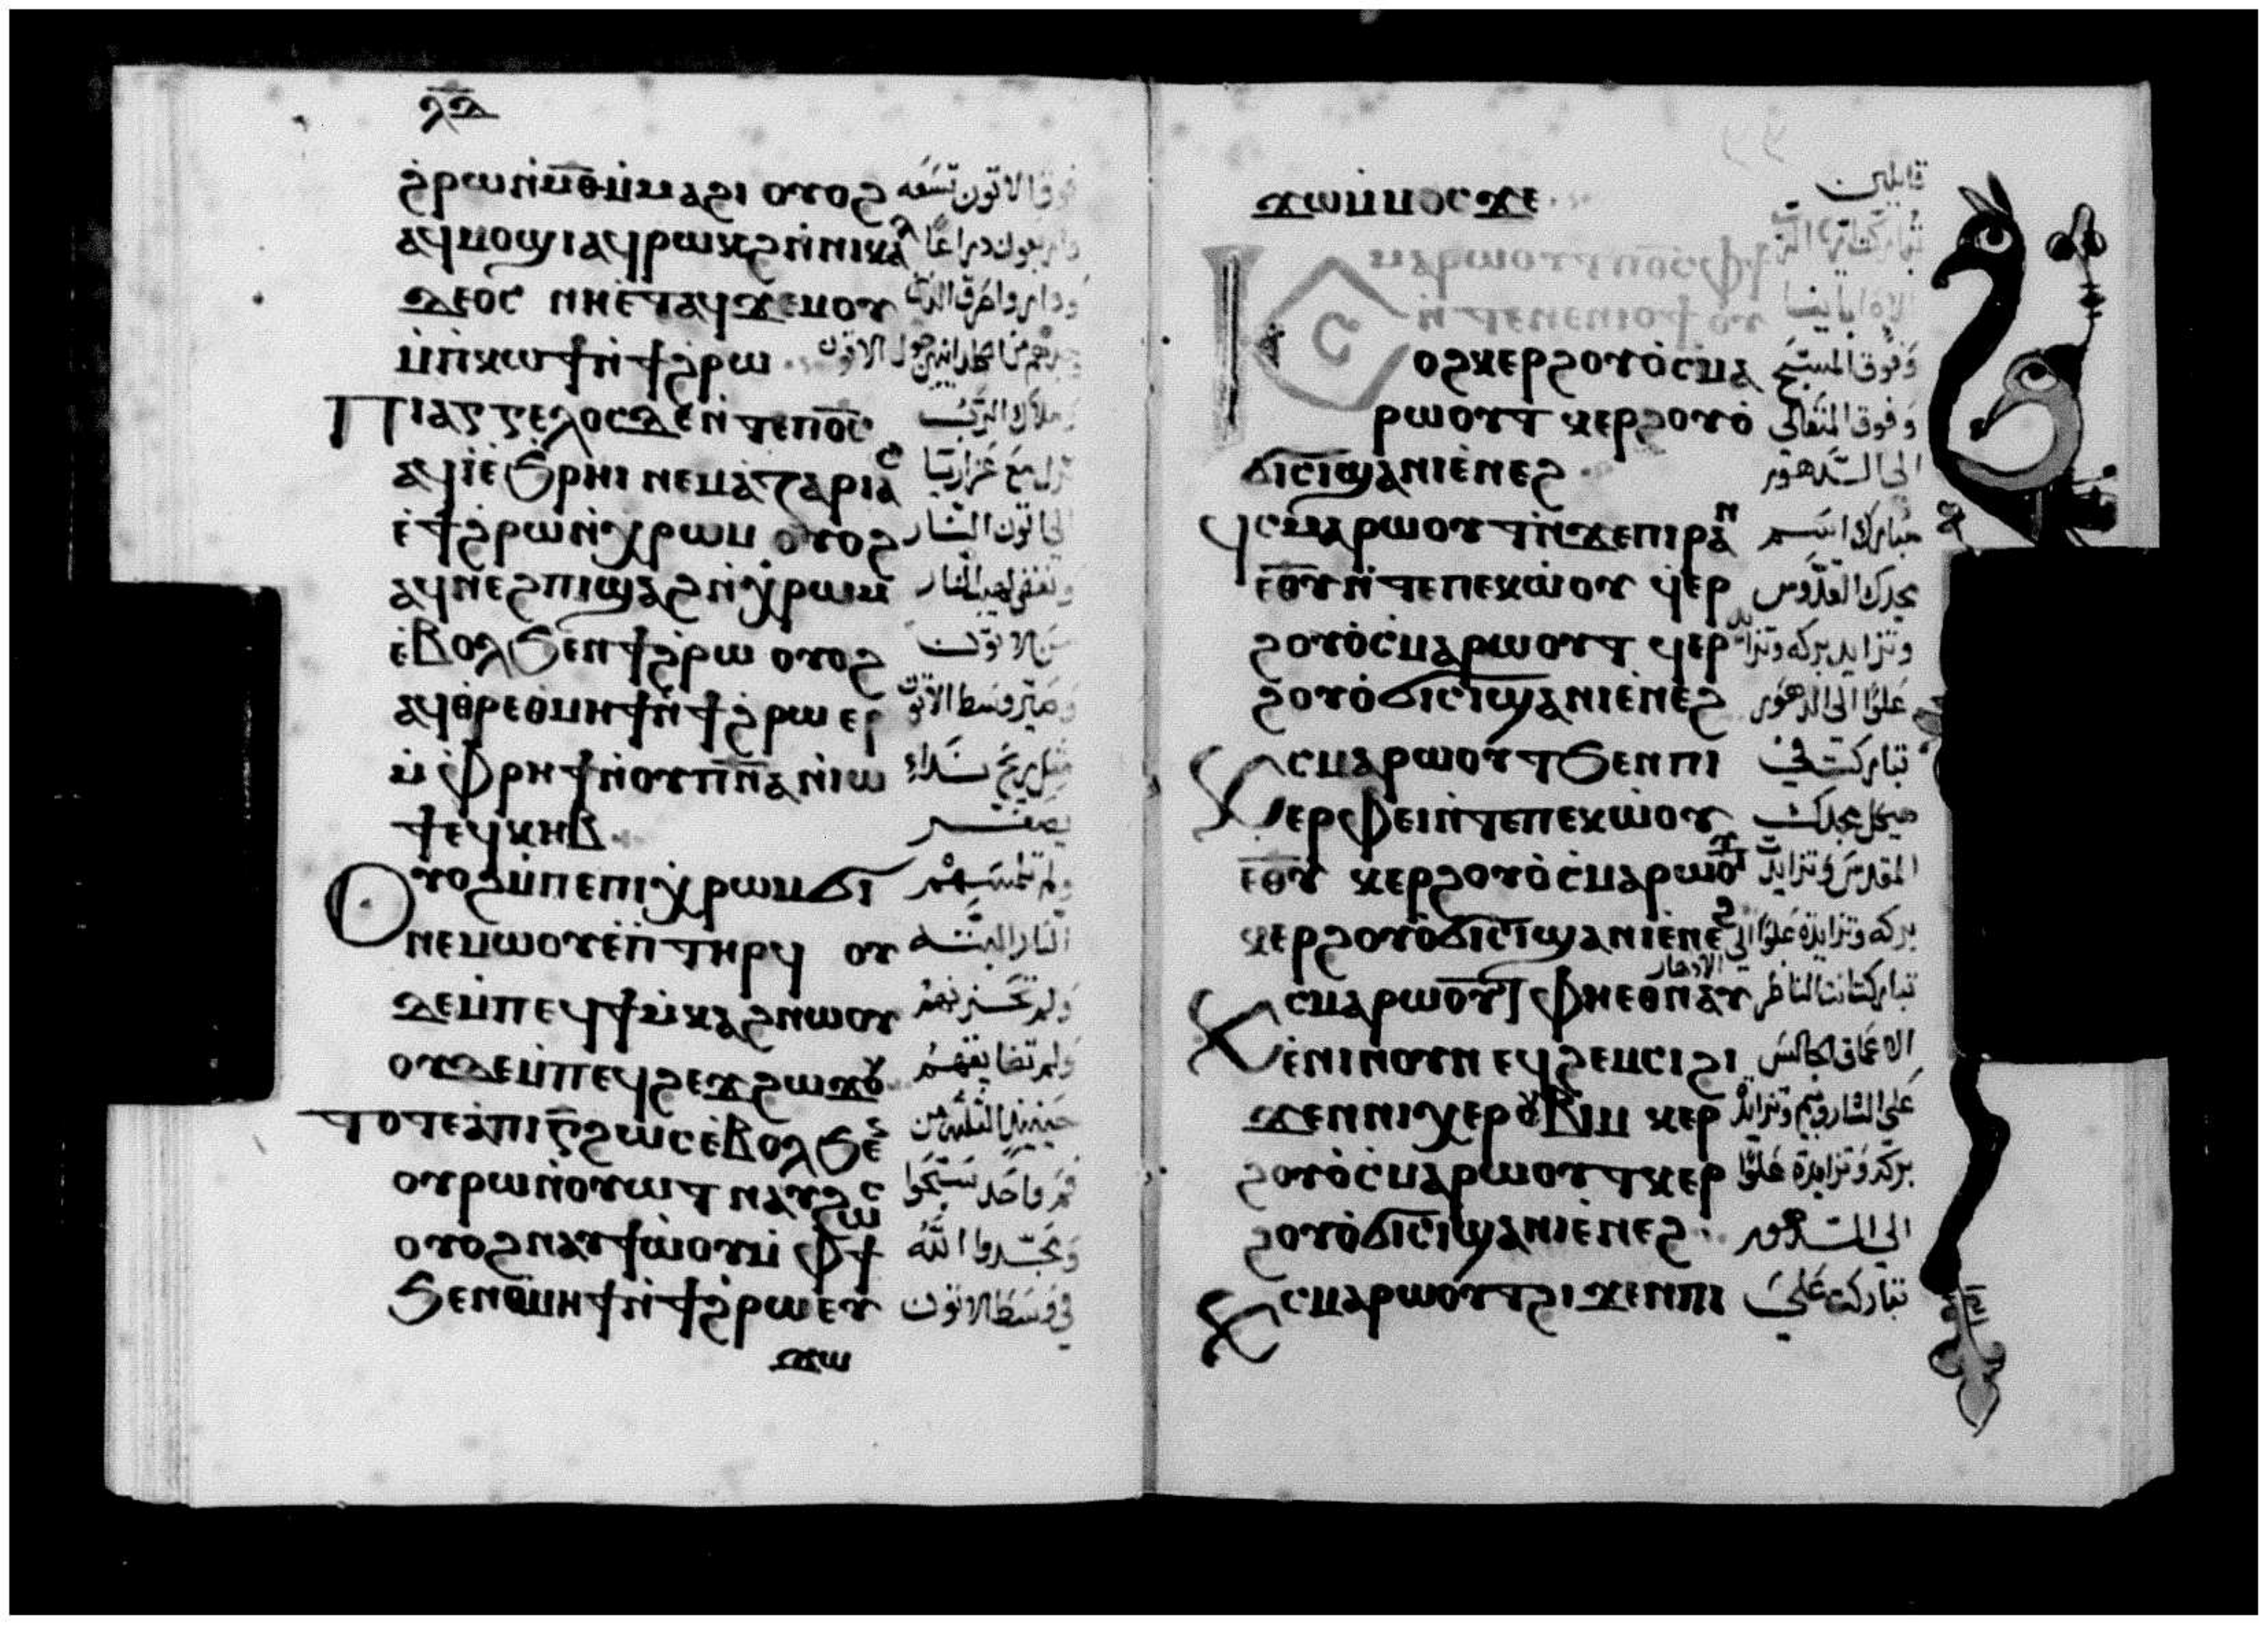 ⲗ̅ⲇ̅
ϩ̀ⲣⲱⲙ̀ⲙ̅ⲑ̅ⲙ̀ⲙⲁϩⲓ ⲟⲩⲟϩ فوق الاتون تسعه
ⲁϥⲙⲟϣⲓ ⲁϥⲣⲱⲕϩ ⲛ̀ⲛⲓⲭⲁⲗ
ⲇⲉⲟⲥ ⲛⲏⲉ̀ⲧⲁϥϫⲉⲙⲟⲩ
ⲙ̀ⲡ̀ⲕⲱϯ ⲛ̀ϯϩ̀ⲣⲱ حول الاتون
Ⲡⲓⲁⲅⲅⲉⲗⲟⲥ ⲇⲉ ⲛ̀ⲧⲉ ⲡⲟ̅ⲥ̅ ملاك الرب
ⲁϥⲓ̀ ⲉ̀ϧⲣⲏⲓ ⲛⲉⲙ ⲁⲍⲁⲣⲓⲁⲥ نزل مع عزاريا
ⲉ̀ϯϩ̀ⲣⲱ ⲛ̀ⲭ̀ⲣⲱⲙ ⲟⲩⲟϩ الى اتون النار
ⲁϥⲛⲉϩ ⲡⲓϣⲁϩ ⲛ̀ⲭ̀ⲣⲱⲙ ونفض لهيب النار
ⲉ̀ⲃⲟⲗϧⲉⲛ ϯϩ̀ⲣⲱ ⲟⲩⲟϩ من الاتون
ⲁϥⲑⲣⲉ ⲑ̀ⲙⲏϯ ⲛ̀ϯϩ̀ⲣⲱ ⲉⲣ وصير وسط الاتون
ⲙ̀ⲫ̀ⲣⲏϯ ⲛ̀ⲟⲩⲡ̅ⲛ̅ⲁ̅ ⲛ̀ⲓⲱ مثل ريح نداء
ϯ ⲉϥⲭⲏⲃ
Ⲟⲩⲟϩ ⲙ̀ⲡⲉ ⲡⲓⲭ̀ⲣⲱⲙ ϭⲓ ولم تلمسهم
ⲛⲉⲙⲱⲟⲩ ⲉ̀ⲡⲧⲏⲣϥ ⲟⲩ النار البته
ⲇⲉ ⲙ̀ⲡⲉϥϯⲙ̀ⲕⲁϩ ⲛⲱⲟⲩ ولم تحزنهم
ⲟⲩⲇⲉ ⲙ̀ⲡⲉϥϩⲉϫϩⲱϫⲟⲩ ولم تضايقهم
Ⲧⲟⲧⲉ ⲁ̀ ⲡⲓⲅ̅ ϩⲱⲥ ⲉ̀ⲃⲟⲗϧⲉⲛ حينيذ الثلثه من
ⲟⲩⲣⲱ ⲛ̀ⲟⲩⲱⲧ ⲛⲁⲩϩⲱⲥ فم واحد سبحوا
ⲟⲩⲟϩ ⲛⲁⲩϯⲱ̀ⲟⲩ ⲙ̀ⲫϯ ومجدوا الله
ϧⲉⲛ ⲑ̀ⲙⲏϯ ⲛ̀ϯϩ̀ⲣⲱ ⲉⲩ في وسط الاتون
ϫⲱ
ϫⲱⲙ̀ⲙⲟⲥ ϫⲉ قايلين
Ⲕ̀ⲥ
ⲟϩ ⲕⲉⲣϩⲟⲩⲟ̀ ⲥ̀ⲙⲁ وفوق المسبح
ⲣⲱⲟⲩⲧ ⲕⲉⲣϩⲟⲩⲟ̀ وفوق المتعالى
ϭⲓⲥⲓ ϣⲁ ⲛⲓⲉ̀ⲛⲉϩ الى الدهور
ϥⲥ̀ⲙⲁⲣⲱⲟⲩⲧ ⲛ̀ϫⲉ ⲡⲓⲣⲁⲛ مبارك اسم
ⲉ̅ⲑ̅ⲩ̅ ⲛ̀ⲧⲉ ⲡⲉⲕⲱ̀ⲟⲩ ϥ̀ⲉⲣ مجدك القدوس
ϩⲟⲩⲟ̀ ⲥ̀ⲙⲁⲣⲱⲟⲩⲧ ϥ̀ⲉⲣ وتزايد بركه
ϩⲟⲩⲟ̀ ϭⲓⲥⲓ ϣⲁ ⲛⲓⲉ̀ⲛⲉϩ علوا الى الدهور
Ⲕⲥ̀ⲙⲁⲣⲱⲟⲩⲧ ϧⲉⲛ ⲡⲓ تباركت في
ⲉⲣⲫⲉⲓ ⲛ̀ⲧⲉ ⲡⲉⲕⲱ̀ⲟⲩ هيكل مجدك
ⲉ̅ⲑ̅ⲩ̅ ⲕⲉⲣϩⲟⲩⲟ̀ ⲥ̀ⲙⲁⲣⲱⲟⲩⲧ المقدس وتزايدت
ⲕⲉⲣϩⲟⲩⲟ̀ ϭⲓⲥⲓ ϣⲁ ⲛⲓⲉ̀ⲛⲉϩ بركه وتزايدة علوا الى الادهار
Ⲕⲥ̀ⲙⲁⲣⲱⲟⲩⲧ ⲫⲏⲉⲑⲛⲁⲩ تباركت انت الناظر
ⲉ̀ⲛⲓⲛⲟⲩⲛ ⲉϥϩⲉⲙⲥⲓ ϩⲓ الاعماق الجالس
ϫⲉⲛ ⲛⲓⲭⲉⲣⲟⲩⲃⲓⲙ ⲕⲉⲣ على الشاروبيم وتزايدت
ϩⲟⲩⲟ̀ ⲥ̀ⲙⲁⲣⲱⲟⲩⲧ ⲕⲉⲣ بركة وتزايدة علوا
ϩⲟⲩⲟ̀ ϭⲓⲥⲓ ϣⲁ ⲛⲓⲉ̀ⲛⲉϩ الى الدهور
Ⲕⲥ̀ⲙⲁⲣⲱⲟⲩⲧ ϩⲓϫⲉⲛ ⲡⲓ تباركت على